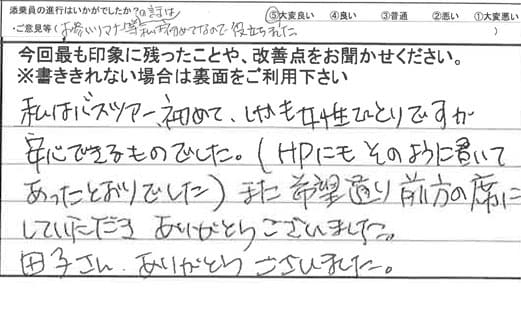 添乗員の進行はいかがでしたか? ⑤大変良い ④良い ③普通 ②悪い ①大変悪い
の話は
・ご意見等(お参りマナー等私は初めてなので役立ちました )
今回最も印象に残ったことや、改善点をお聞かせください。
※書ききれない場合は裏面をご利用下さい
私はバスツアー初めて、しかも女性ひとりですが
安心できるものでした。(HPにもそのように書いて
あったとおりでした)また希望通り前方の席に
していただき ありがとうございました。
田子さん、ありがとうございました。